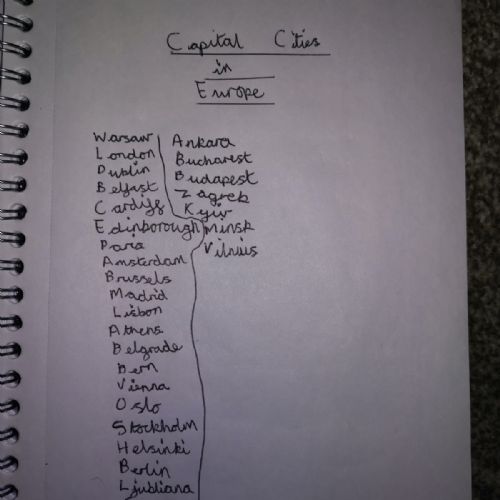 Capital Cities
in
Europe
Warsaw
London
Dublin
Belfast
Cardiff
Edinborough
Paris
Amsterdam
Brussels
Madrid
Lisbon
Athens
Belgrade
Bern
Vienna
Oslo
Stockholm
Helsinki
Berlin
Ljubliana
Ankara
Bucharest
Budapest
Zagreb
Kyiv
Minsk
Vilnius